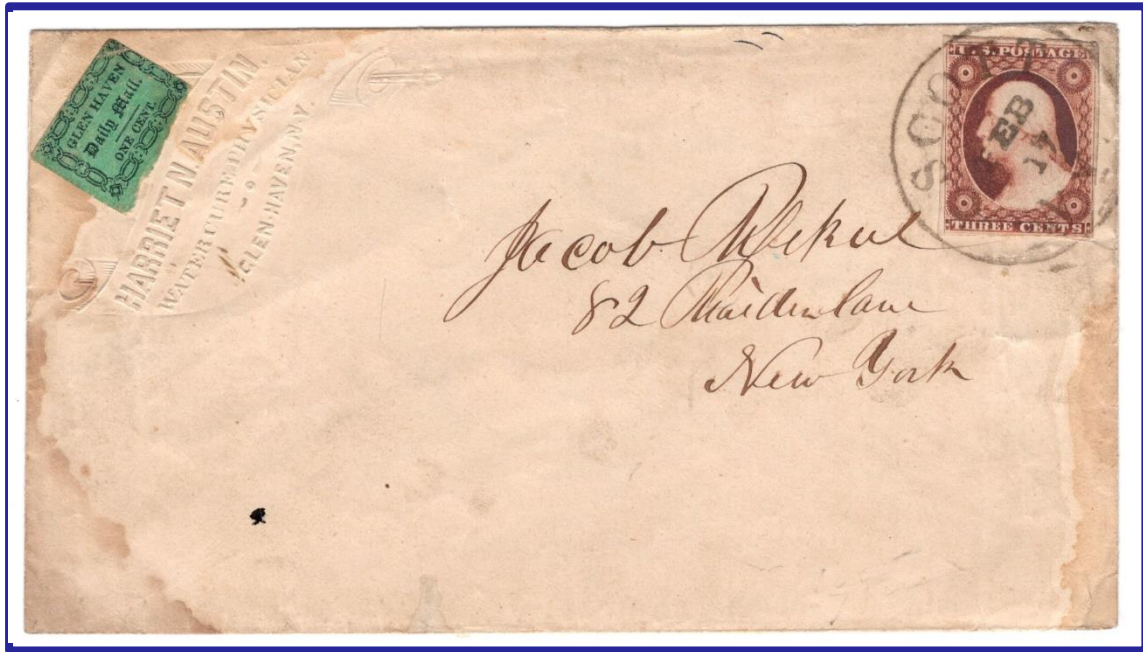 GLEN HAVEN
Daily Mail.
ONE CENT.
HARRIET N. AUSTIN.
WATER CURE PHYSICIAN.
GLEN-HAVEN, N.Y.
U.S. POSTAGE
THREE CENTS
SCOTT
FEB
17
N.Y.
Jacob
82 Maiden lane
New York